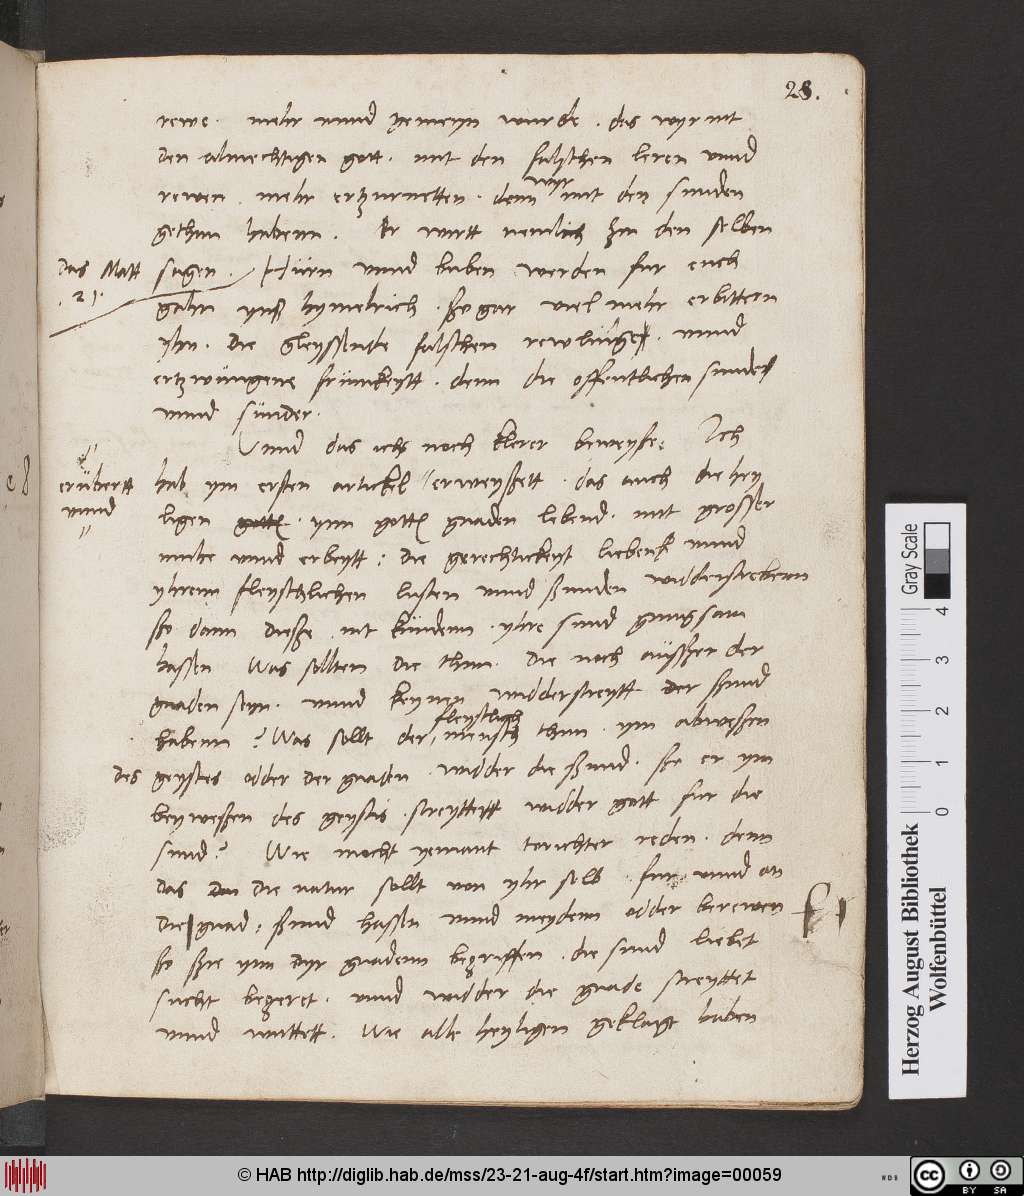 28.
rewe. mehr unnd zcu meryn wurde. das wyr mit
den almechtigen gott. mit den falschen leren unnd
rewen. mehr ertzurnetten. denn wyr mit den sunden
gethan habenn. Er wirtt nemlich zu den selben
Das Matt
.21.
sagen. Hürn unnd buben werden fur euch
gahn ynß hymelrich. ßo gar viel mehr erbittern
yhn. die gleyssende falschen rewlinge. unnd
ertzwungene frümkeytt. denn die offentlichen sunde
unnd sünder.
Unnd das ichs noch klerer beweyse. Ich
hab ym ersten artickel erweyßett. das auch die hey
erübertt
unnd
ligen gottis. ynn gottis gnaden lebend. mit grosser
muhe unnd erbeytt: die gerechtickeyt lieben unnd
yhrenn fleyschlichen lusten unnd sunden widderstrebenn
ßo dann dieße nit kündenn. yhre sund gnugsam
hassen Was sollten die thun. die noch aüsser der
gnaden seyn. unnd keynen widderstreytt der sund
habenn? Was sollt der fleyschlich mensch thun. ym abweßen
des geystes odder der gnaden. widder die sund. ßo er ym
beyweßen des geystis streyttett widder gott fur die
sund? Wie mocht yemant torichter reden. denn
das die natur sollt von yhr selb fur unnd an
die gnad, sund hassen unnd meydenn odder berewen
ßo sye ynn der gnadenn begriffen. die sund liebet
sucht begeret. unnd widder die gnade streyttet
unnd wuttett. Wie alle heyligen geklagt haben
Gray Scale
0 1 2 3 4
Herzog August Bibliothek
Wolfenbüttel
© HAB http://diglib.hab.de/mss/23-21-aug-4f/start.htm?image=00059
WDB
cc BY SA